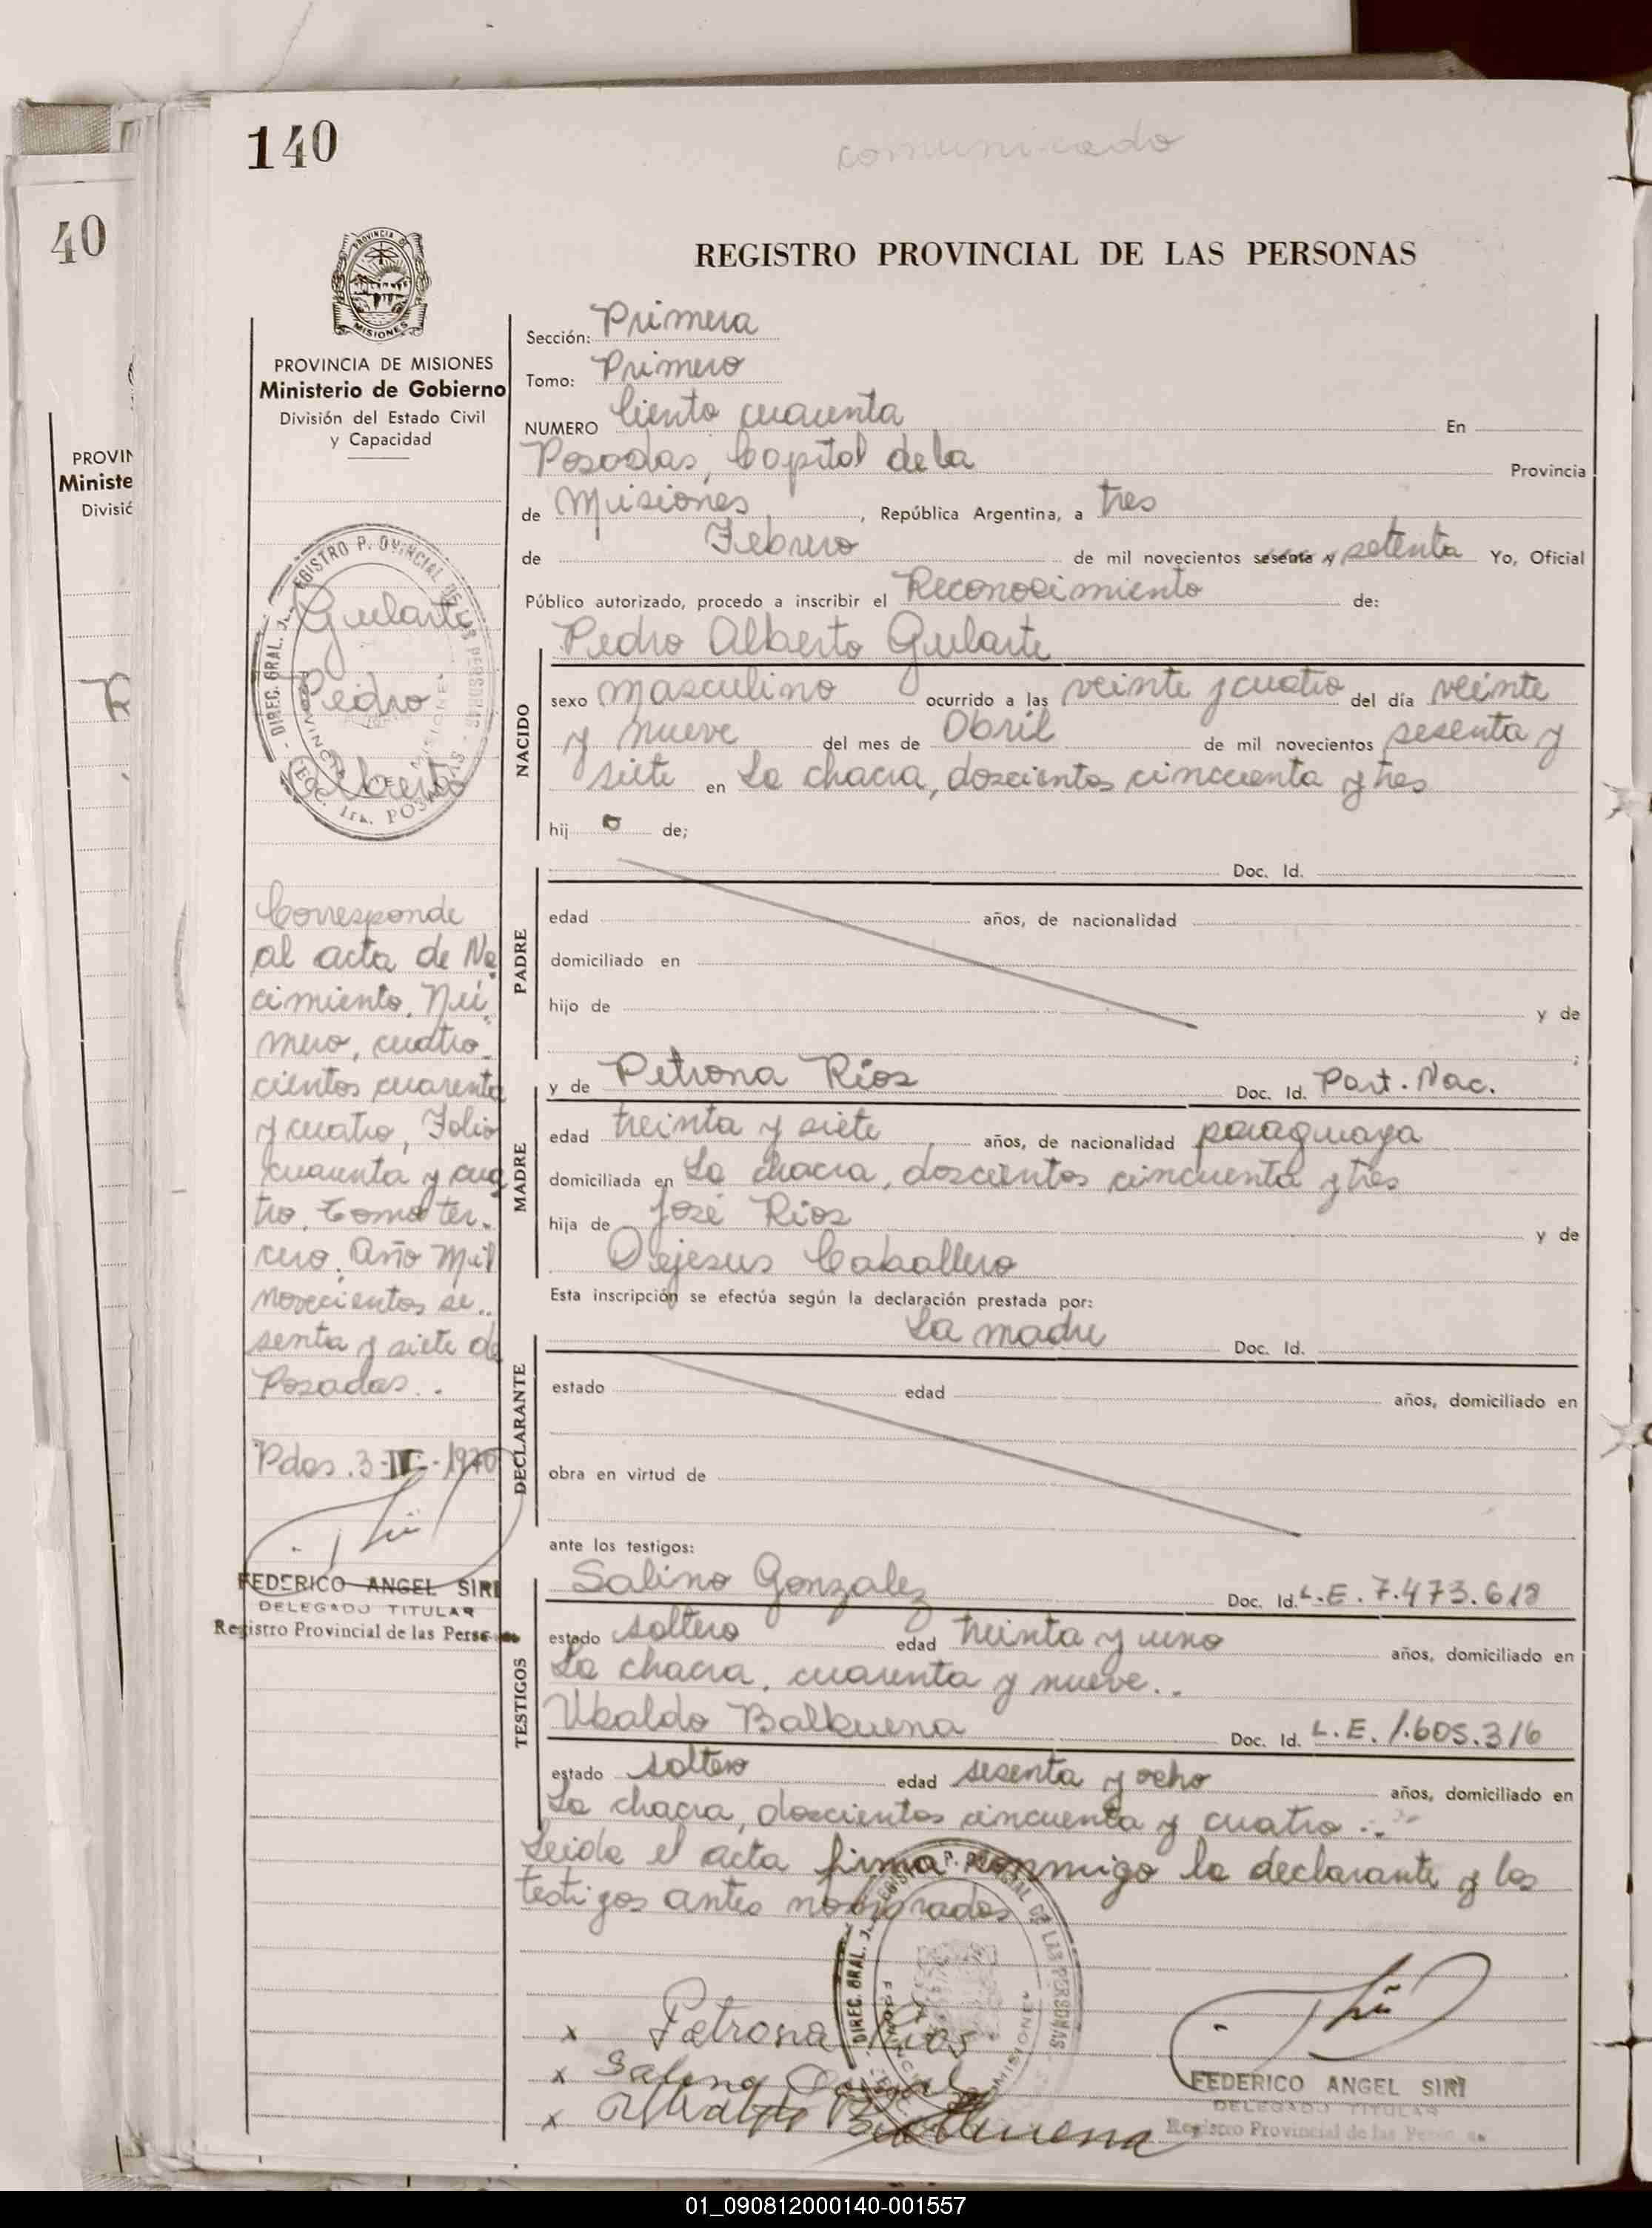 140
comunicado
40
REGISTRO PROVINCIAL DE LAS PERSONAS
MISIONES
PROVINCIA DE MISIONES
Ministerio de Gobierno
División del Estado Civil
y Capacidad
PROVIN
Ministe
Divisió
Sección: Primera
Tomo: Primero
NUMERO Ciento cuarenta En
Posadas, Capital de la Provincia
de Misiones, República Argentina, a tres
de Febrero de mil novecientos sesenta y setenta Yo, Oficial
Público autorizado, procedo a inscribir el Reconocimiento de:
Gularte
Pedro
Alberto
NACIDO
Pedro Alberto Gularte
sexo masculino ocurrido a las veinte y cuatro del día veinte
y nueve del mes de Abril de mil novecientos sesenta y
siete en La chacra, doscientos cincuenta y tres
hij o de;
PADRE
Doc. Id.
edad años, de nacionalidad
domiciliado en
hijo de y de
MADRE
y de Petrona Ríos Doc. Id. Part. Nac.
edad treinta y siete años, de nacionalidad paraguaya
domiciliada en La chacra, doscientos cincuenta y tres
hija de José Ríos y de
Dejesus Caballero
Esta inscripción se efectúa según la declaración prestada por:
DECLARANTE
La madre Doc. Id.
estado edad años, domiciliado en
obra en virtud de
ante los testigos:
TESTIGOS
Salino Gonzalez Doc. Id. L.E. 7.473.618
estado soltero edad treinta y uno años, domiciliado en
La chacra, cuarenta y nueve..
Ubaldo Balbuena Doc. Id. L.E. 1.605.316
estado soltero edad sesenta y ocho años, domiciliado en
La chacra, doscientos cincuenta y cuatro
Leida el acta firma conmigo la declarante y los
testigos antes nombrados
Corresponde
al acta de Na
cimiento, Nú
mero, cuatro
cientos cuarenta
y cuatro, Folio
cuarenta y cua
tro, Tomo ter.
cero, Año Mil
novecientos se..
senta y siete de
Posadas..
Pdas. 3-II-1970
FEDERICO ANGEL SIRI
DELEGADO TITULAR
Registro Provincial de las Perso
x Petrona Rios
x
x Balbuena
FEDERICO ANGEL SIRI
DELEGADO TITULAR
Registro Provincial de las Perso
01_090812000140-001557